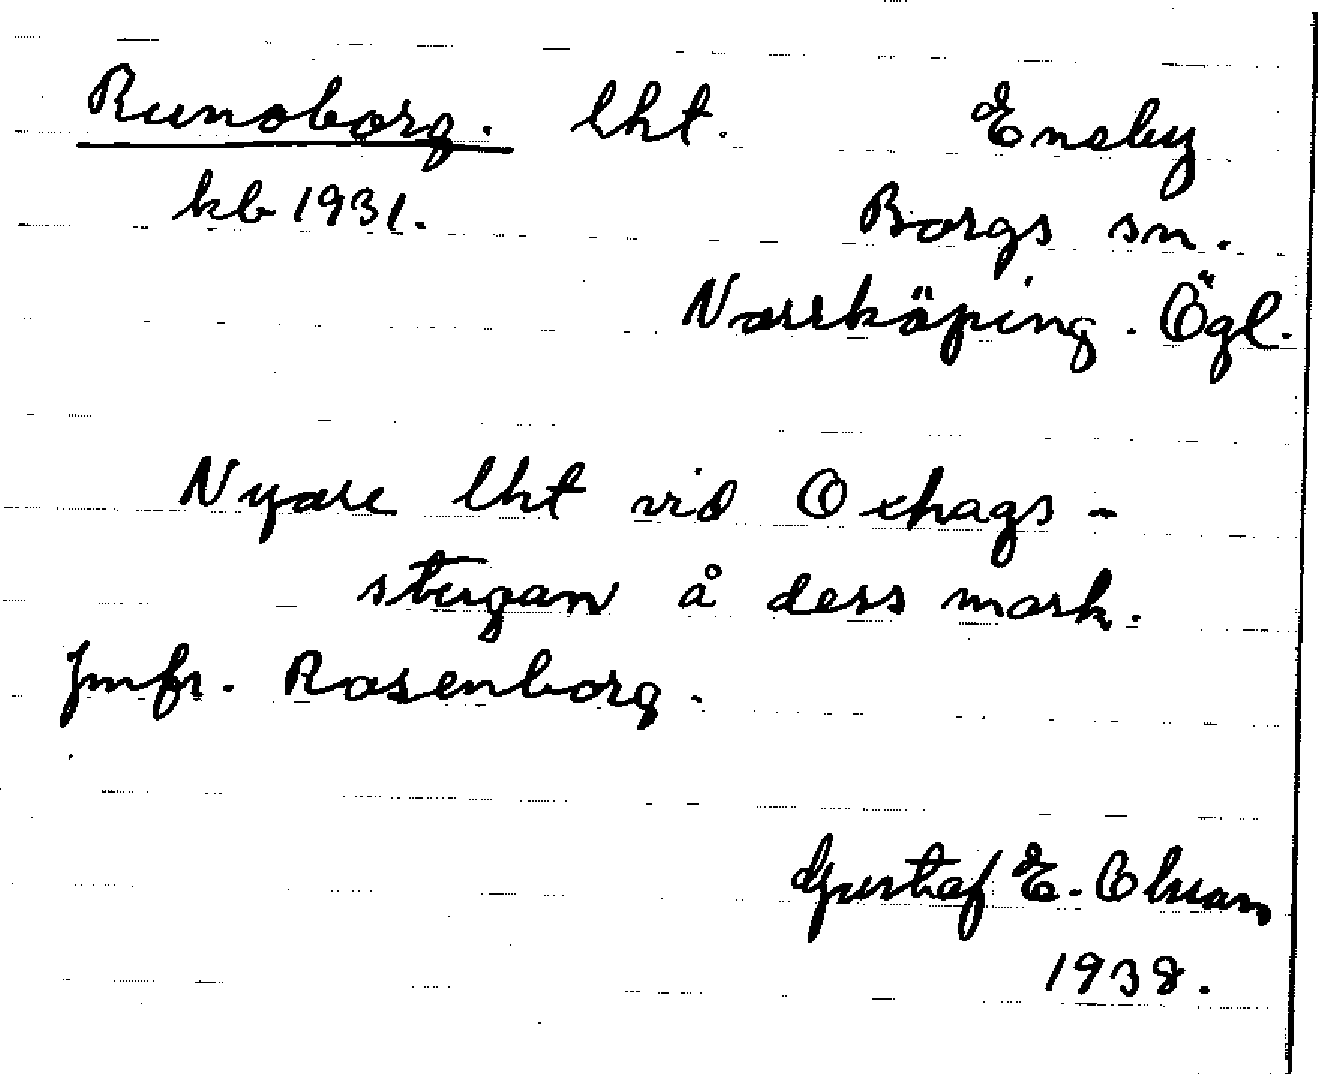 Runoborg. lht. Eneby
kb 1931. Borgs sn.
Norrköping. Ögl.
Nyare lht vid Oxhags-
stugan å dess mark.
Jmfr. Rosenborg.
Gustaf E. Olsson
1938.